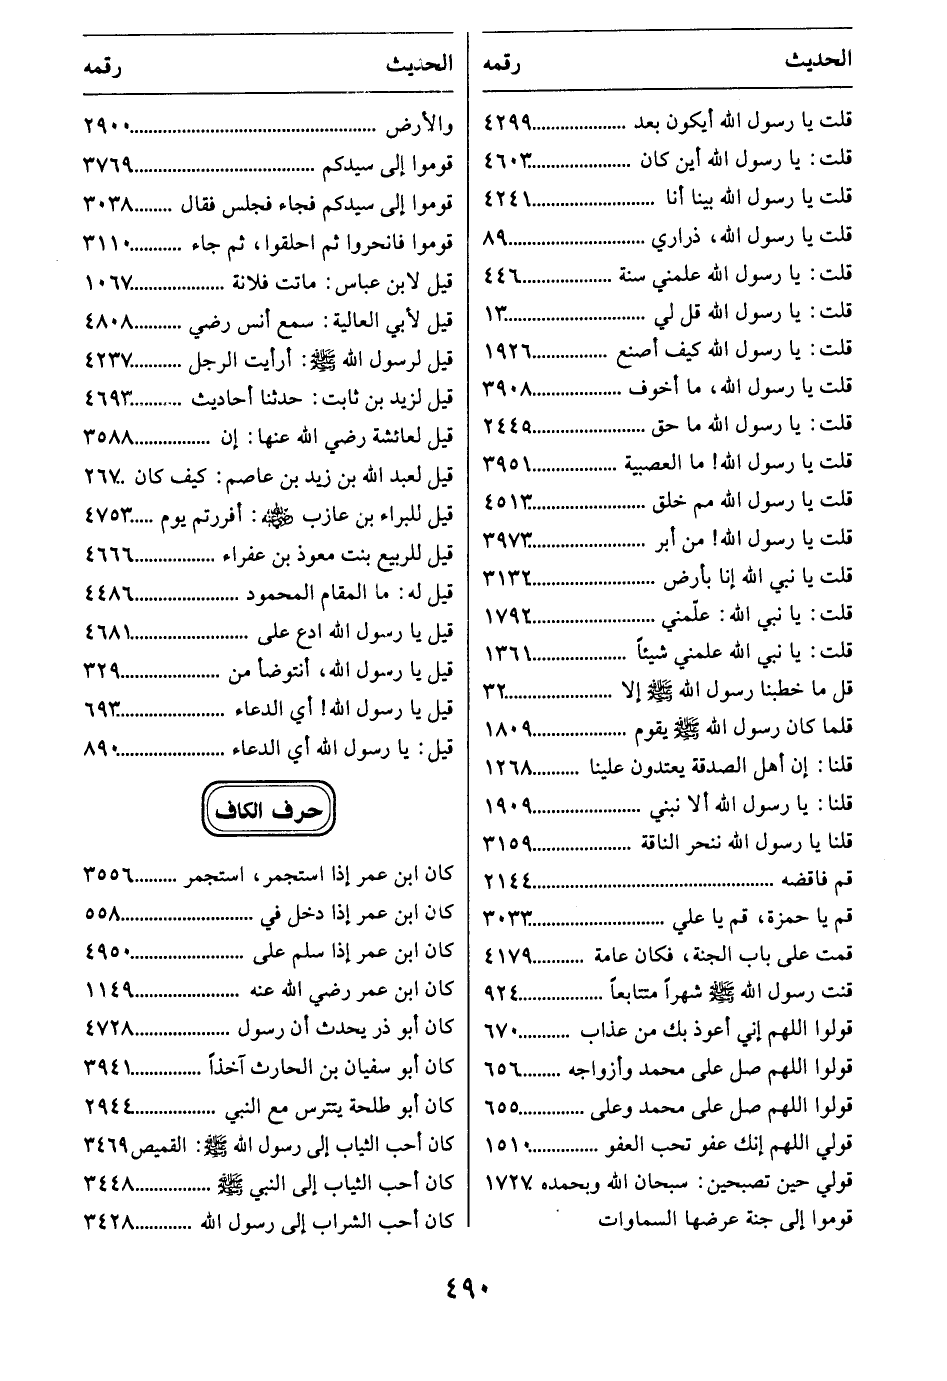 الحديث رقمه
قلت يا رسول الله أيكون بعد ....................٤٢٩٩
قلت: يا رسول الله أين كان ....................٤٦٠٣
قلت يا رسول الله بينا أنا ....................٤٢٤١
قلت يا رسول الله، ذراري ....................٨٩
قلت: يا رسول الله علمني سنة ....................٤٤٦
قلت: يا رسول الله قل لي ....................١٣
قلت: يا رسول الله كيف أصنع ..............١٩٢٦
قلت يا رسول الله، ما أخوف ....................٣٩٠٨
قلت: يا رسول الله ما حق ....................٢٤٤٥
قلت يا رسول الله! ما العصبية ..................٣٩٥١
قلت يا رسول الله مم خلق ....................٤٥١٣
قلت يا رسول الله! من أبر ....................٣٩٧٣
قلت يا نبي الله إنا بأرض ....................٣١٣٢
قلت: يا نبي الله: علّمني ....................١٧٩٢
قلت: يا نبي الله علمني شيئاً ....................١٣٦١
قل ما خطبنا رسول الله ﷺ إلا ....................٣٢
قلما كان رسول الله ﷺ يقوم ....................١٨٠٩
قلنا: إن أهل الصدقة يعتدون علينا ..........١٢٦٨
قلنا: يا رسول الله ألا نبني ....................١٩٠٩
قلنا يا رسول الله ننحر الناقة ....................٣١٥٩
قم فاقضه ....................٢١٤٤
قم يا حمزة، قم يا علي ....................٣٠٣٣
قمت على باب الجنة، فكان عامة ...........٤١٧٩
قنت رسول الله ﷺ شهراً متتابعاً ....................٩٢٤
قولوا اللهم إني أعوذ بك من عذاب ..........٦٧٠
قولوا اللهم صل على محمد وأزواجه ........٦٥٦
قولوا اللهم صل على محمد وعلى ..............٦٥٥
قولي اللهم إنك عفو تحب العفو ..............١٥١٠
قولي حين تصبحين: سبحان الله وبحمده .١٧٢٧
قوموا إلى جنة عرضها السماوات
الحديث رقمه
والأرض ....................٢٩٠٠
قوموا إلى سيدكم ....................٣٧٦٩
قوموا إلى سيدكم فجاء فجلس فقال ........٣٠٣٨
قوموا فانحروا ثم احلقوا، ثم جاء ...........٣١١٠
قيل لابن عباس: ماتت فلانة ....................١٠٦٧
قيل لأبي العالية: سمع أنس رضي ..........٤٨٠٨
قيل لرسول الله ﷺ: أرأيت الرجل ...........٤٢٣٧
قيل لزيد بن ثابت: حدثنا أحاديث ...........٤٦٩٣
قيل لعائشة رضي الله عنها: إن ................٣٥٨٨
قيل لعبد الله بن زيد بن عاصم: كيف كان ..٢٦٧
قيل للبراء بن عازب ﷺ: أفررتم يوم .....٤٧٥٣
قيل للربيع بنت معوذ بن عفراء ..............٤٦٦٦
قيل له: ما المقام المحمود ....................٤٤٨٦
قيل يا رسول الله ادع على ....................٤٦٨١
قيل يا رسول الله، أنتوضأ من ....................٣٢٩
قيل يا رسول الله! أي الدعاء ....................٦٩٣
قيل: يا رسول الله أي الدعاء ....................٨٩٠
حرف الكاف
كان ابن عمر إذا استجمر، استجمر .........٣٥٥٦
كان ابن عمر إذا دخل في ....................٥٥٨
كان ابن عمر إذا سلم على ....................٤٩٥٠
كان ابن عمر رضي الله عنه ....................١١٤٩
كان أبو ذر يحدث أن رسول ....................٤٧٢٨
كان أبو سفيان بن الحارث آخذاً ..............٣٩٤١
كان أبو طلحة يتترس مع النبي ..............٢٩٤٤
كان أحب الثياب إلى رسول الله ﷺ: القميص ٣٤٦٩
كان أحب الثياب إلى النبي ﷺ ..............٣٤٤٨
كان أحب الشراب إلى رسول الله ...........٣٤٢٨
٤٩٠